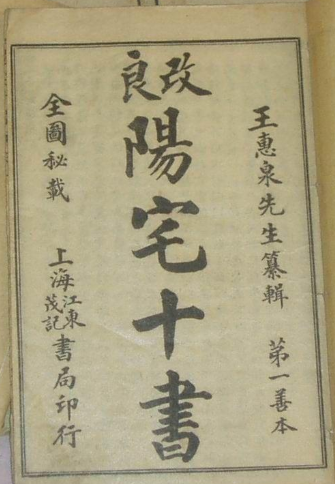 王惠泉先生纂輯　第一善本
改良
陽宅十書
全圖秘載　上海江東茂記書局印行